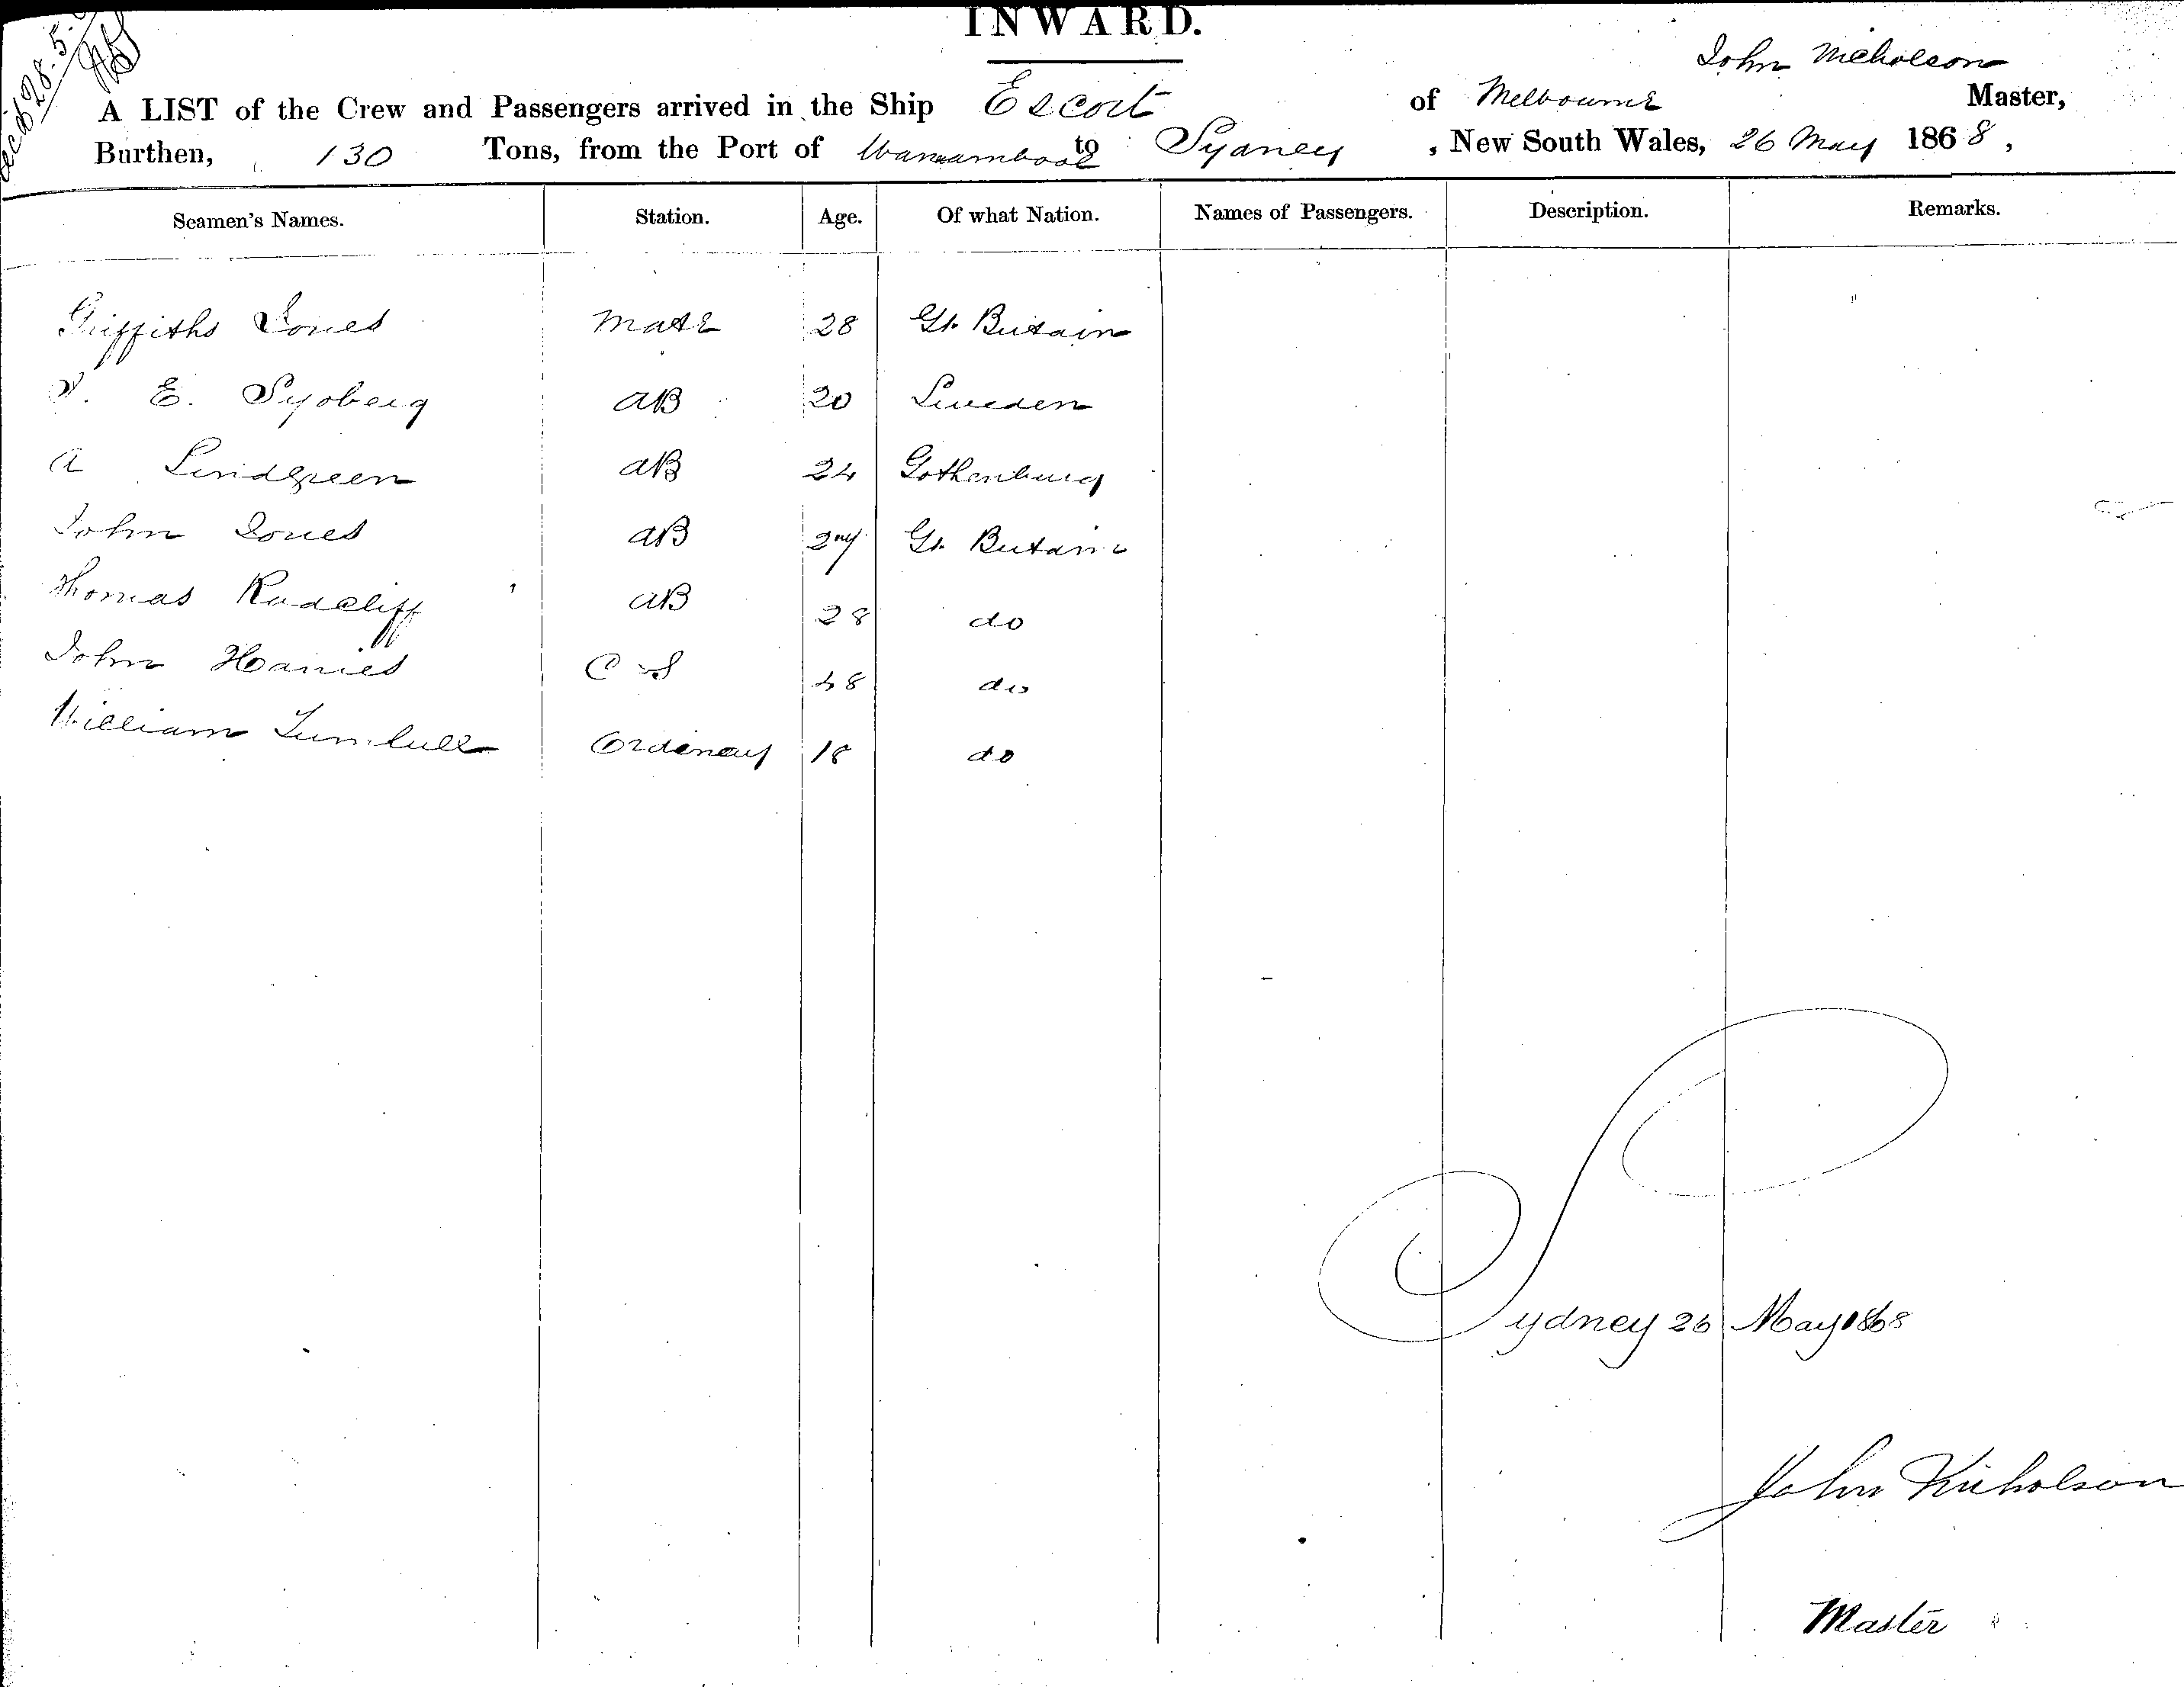 INWARD.
Recd 28.5.
John Nicholson
A LIST of the Crew and Passengers arrived in the Ship Escort of Melbourne Master,
Burthen, 130 Tons, from the Port of Warrnambool to Sydney , New South Wales, 26 May 1868 ,
Seamen's Names. Station. Age. Of what Nation. Names of Passengers. Description. Remarks.
Griffiths Jones Mate 28 Gt. Britain
E. Syoberg AB 20 Sweden
A Lindgreen AB 24 Gothenburg
John Jones AB 27 Gt. Britain
Thomas Radcliff AB 28 do
John Haines C &S 48 do
William Turnbull Ordenary 18 do
Sydney 26 May 1868
John Nicholson
Master